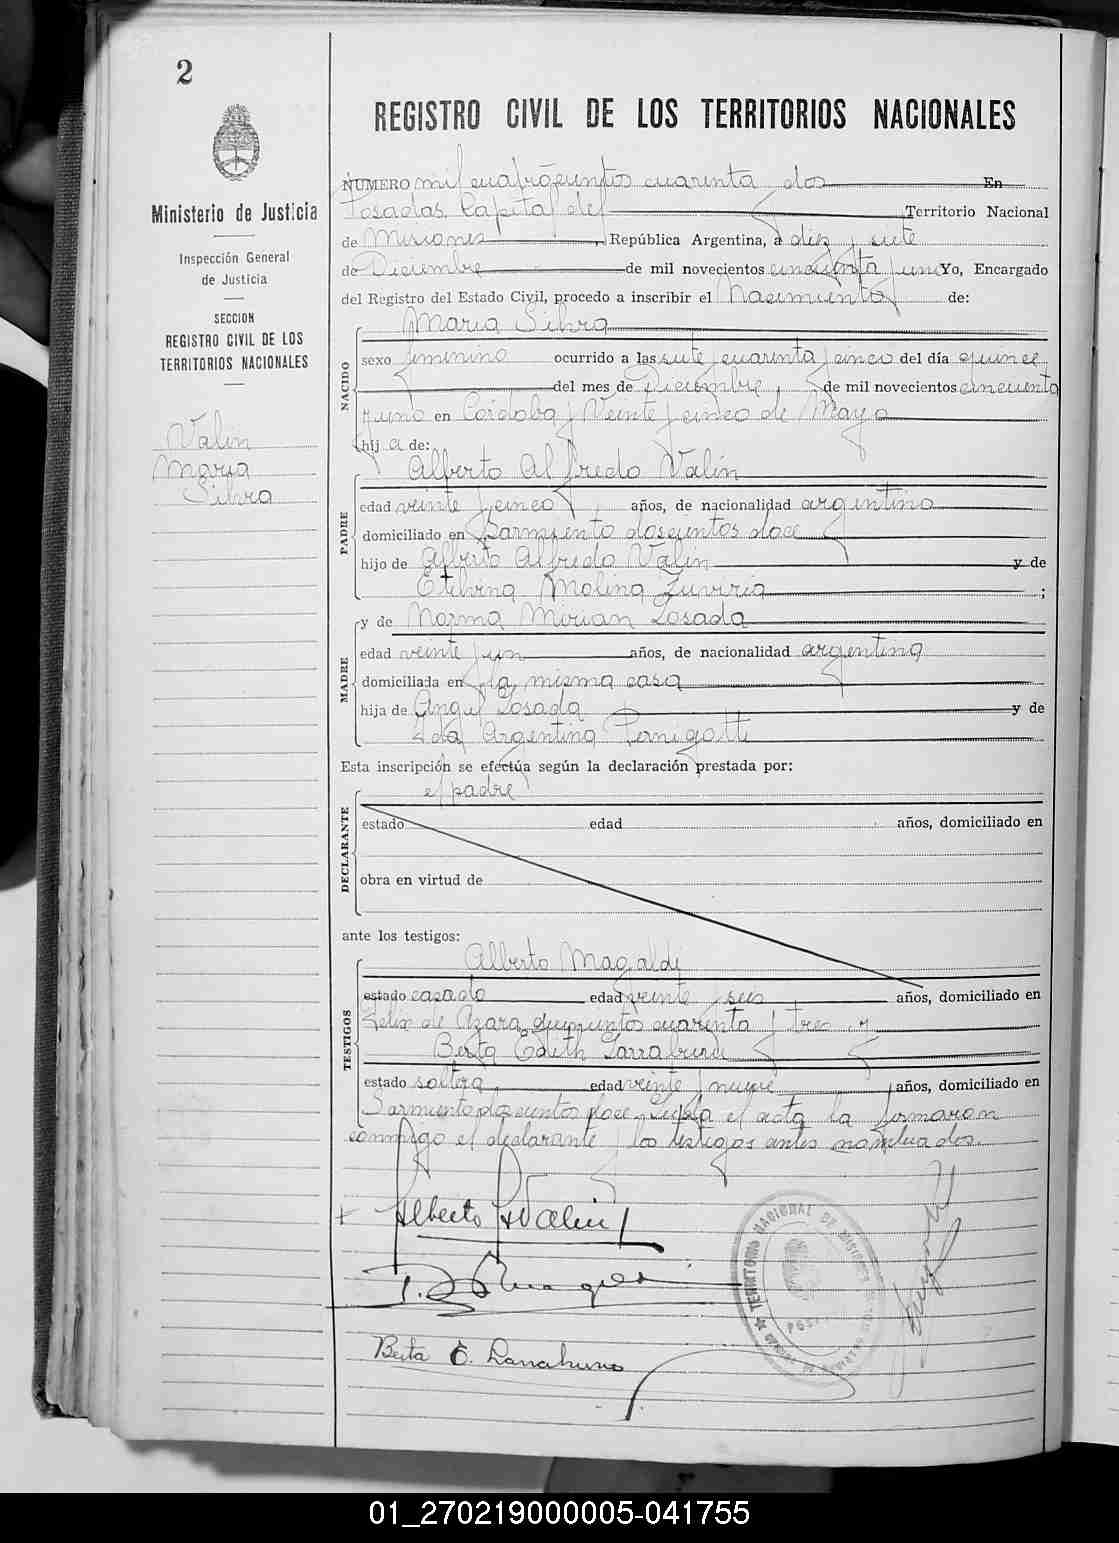 2
REGISTRO CIVIL DE LOS TERRITORIOS NACIONALES
Ministerio de Justicia
Inspección General
de Justicia
SECCION
REGISTRO CIVIL DE LOS
TERRITORIOS NACIONALES
Valin
Maria
Silvia
NUMERO mil cuatrocientos cuarenta y dos En
Posadas Capital del Territorio Nacional
de Misiones, República Argentina, a diez y siete
de Diciembre de mil novecientos cincuenta y uno Yo, Encargado
del Registro del Estado Civil, procedo a inscribir el Nacimiento de:
NACIDO
Maria Silvia
sexo femenino ocurrido a las siete y cuarenta y cinco del día quince
del mes de Diciembre, de mil novecientos cincuenta
y uno en Córdoba y Veinte y cinco de Mayo
hija de:
PADRE
Alberto Alfredo Valin
edad veinte y cinco años, de nacionalidad argentino
domiciliado en Sarmiento doscientos doce
hijo de Alberto Alfredo Valin y de
Etelvina Molina Zuviria ;
MADRE
y de Norma Mirian Losada
edad veinte y un años, de nacionalidad argentina
domiciliada en la misma casa
hija de Angel Losada y de
Ida Argentina Pernigotti
Esta inscripción se efectúa según la declaración prestada por:
DECLARANTE
el padre
estado edad años, domiciliado en
obra en virtud de
ante los testigos:
TESTIGOS
Alberto Magaldi
estado casado edad veinte y seis años, domiciliado en
Felix de Azara quinientos cuarenta y tres y
Berta Edith
estado soltera, edad veinte y nueve, años, domiciliado en
Sarmiento doscientos doce. Leída el acta la firmaron
conmigo el declarante y los testigos antes nombrados.
Alberto A Valin
Berta E.
TERRITORIO NACIONAL DE MISIONES
01_270219000005-041755